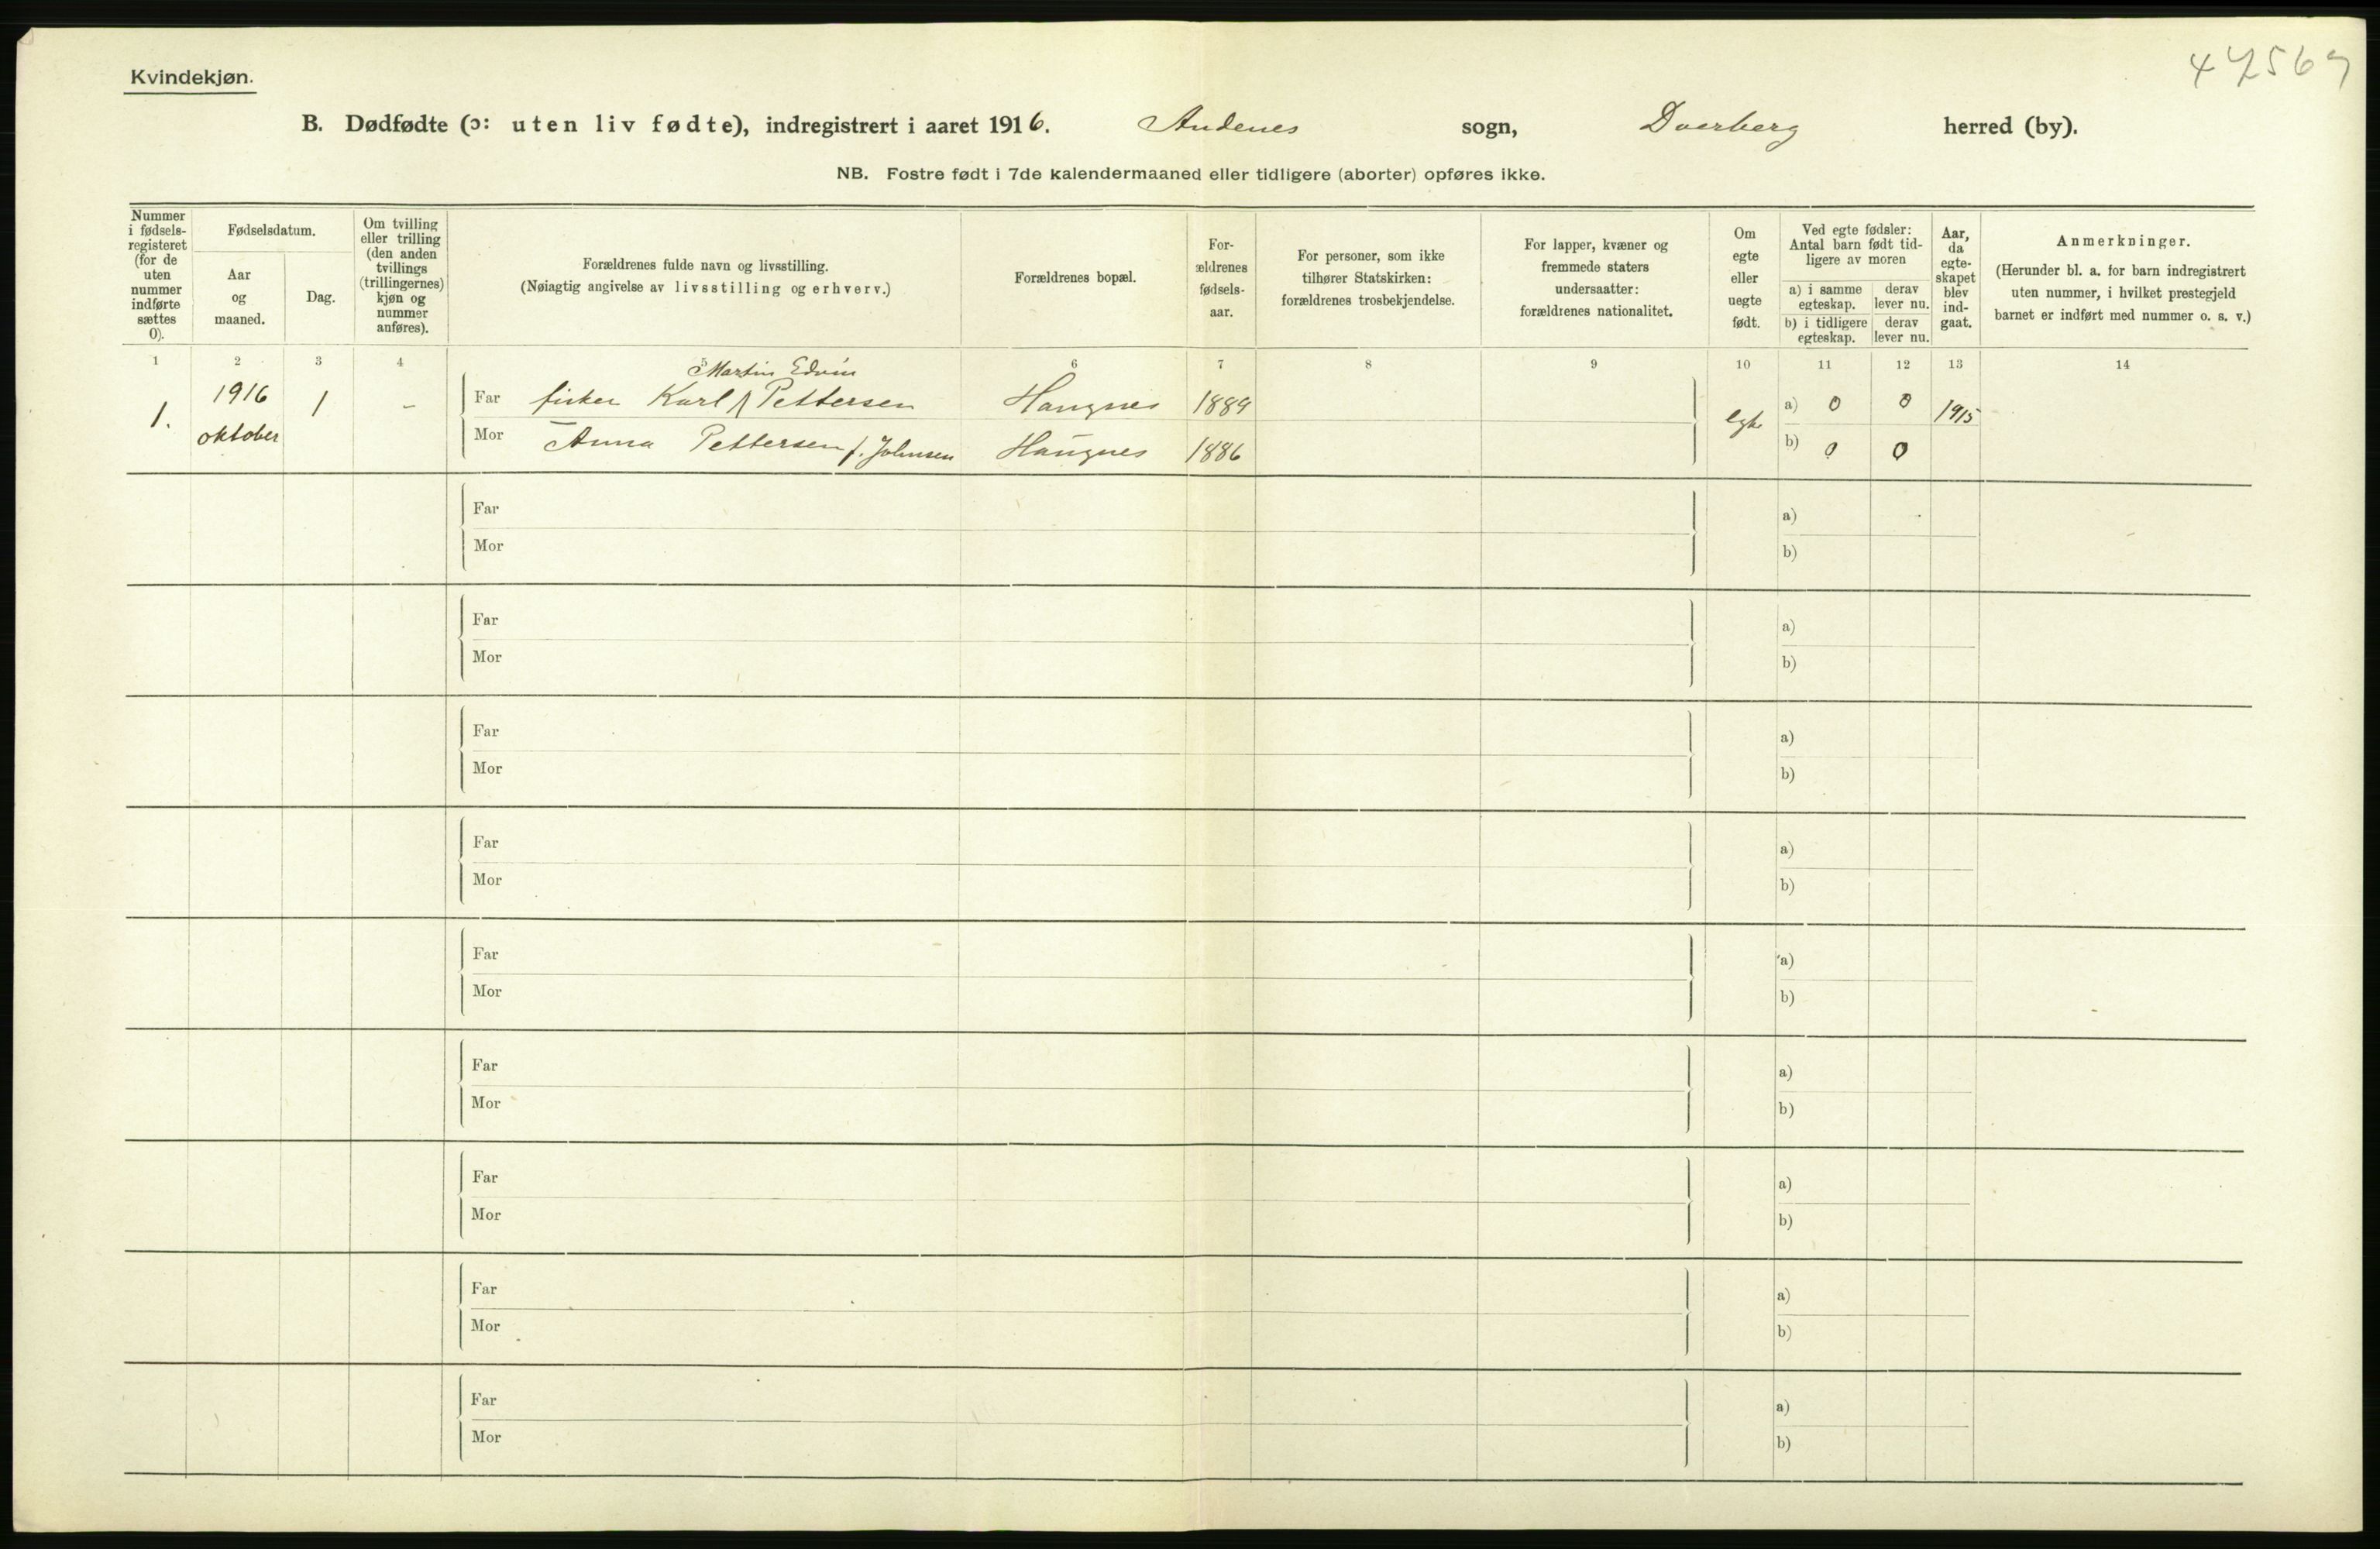 Kvindekjøn.
B. Dødfødte (ɔ: uten liv fødte), indregistrert i aaret 1916. Andenes sogn, Dverberg herred (by).
NB. Fostre født i 7de kalendermaaned eller tidligere (aborter) opføres ikke.
Nummer i fødsels-registeret (for de uten nummer indførte sættes 0).
Fødselsdatum.
Aar og maaned.
Dag.
Om tvilling eller trilling (den anden tvillings (trillingernes) kjøn og nummer anføres).
Forældrenes fulde navn og livsstilling.
(Nøiagtig angivelse av livsstilling og erhverv.)
Forældrenes bopæl.
For-ældrenes fødsels-aar.
For personer, som ikke tilhører Statskirken: forældrenes trosbekjendelse.
For lapper, kvæner og fremmede staters undersaatter: forældrenes nationalitet.
Om egte eller uegte født.
Ved egte fødsler: Antal barn født tid-ligere av moren
a) i samme egteskap.
derav lever nu.
b) i tidligere egteskap.
derav lever nu.
Aar, da egte-skapet blev ind-gaat.
Anmerkninger.
(Herunder bl. a. for barn indregistrert uten nummer, i hvilket prestegjeld barnet er indført med nummer o. s. v.)
1 2 3 4 5 6 7 8 9 10 11 12 13 14
Martin Edvin
1. 1916 oktober 1 - Far fisker Karl Pettersen Haugnes 1889 egte a) 0 0 1915
Mor Anna Pettersen f. Johnsen Haugnes 1886 b) 0 0
Far a)
Mor b)
Far a)
Mor b)
Far a)
Mor b)
Far a)
Mor b)
Far a)
Mor b)
Far a)
Mor b)
Far a)
Mor b)
Far a)
Mor b)
Far a)
Mor b)